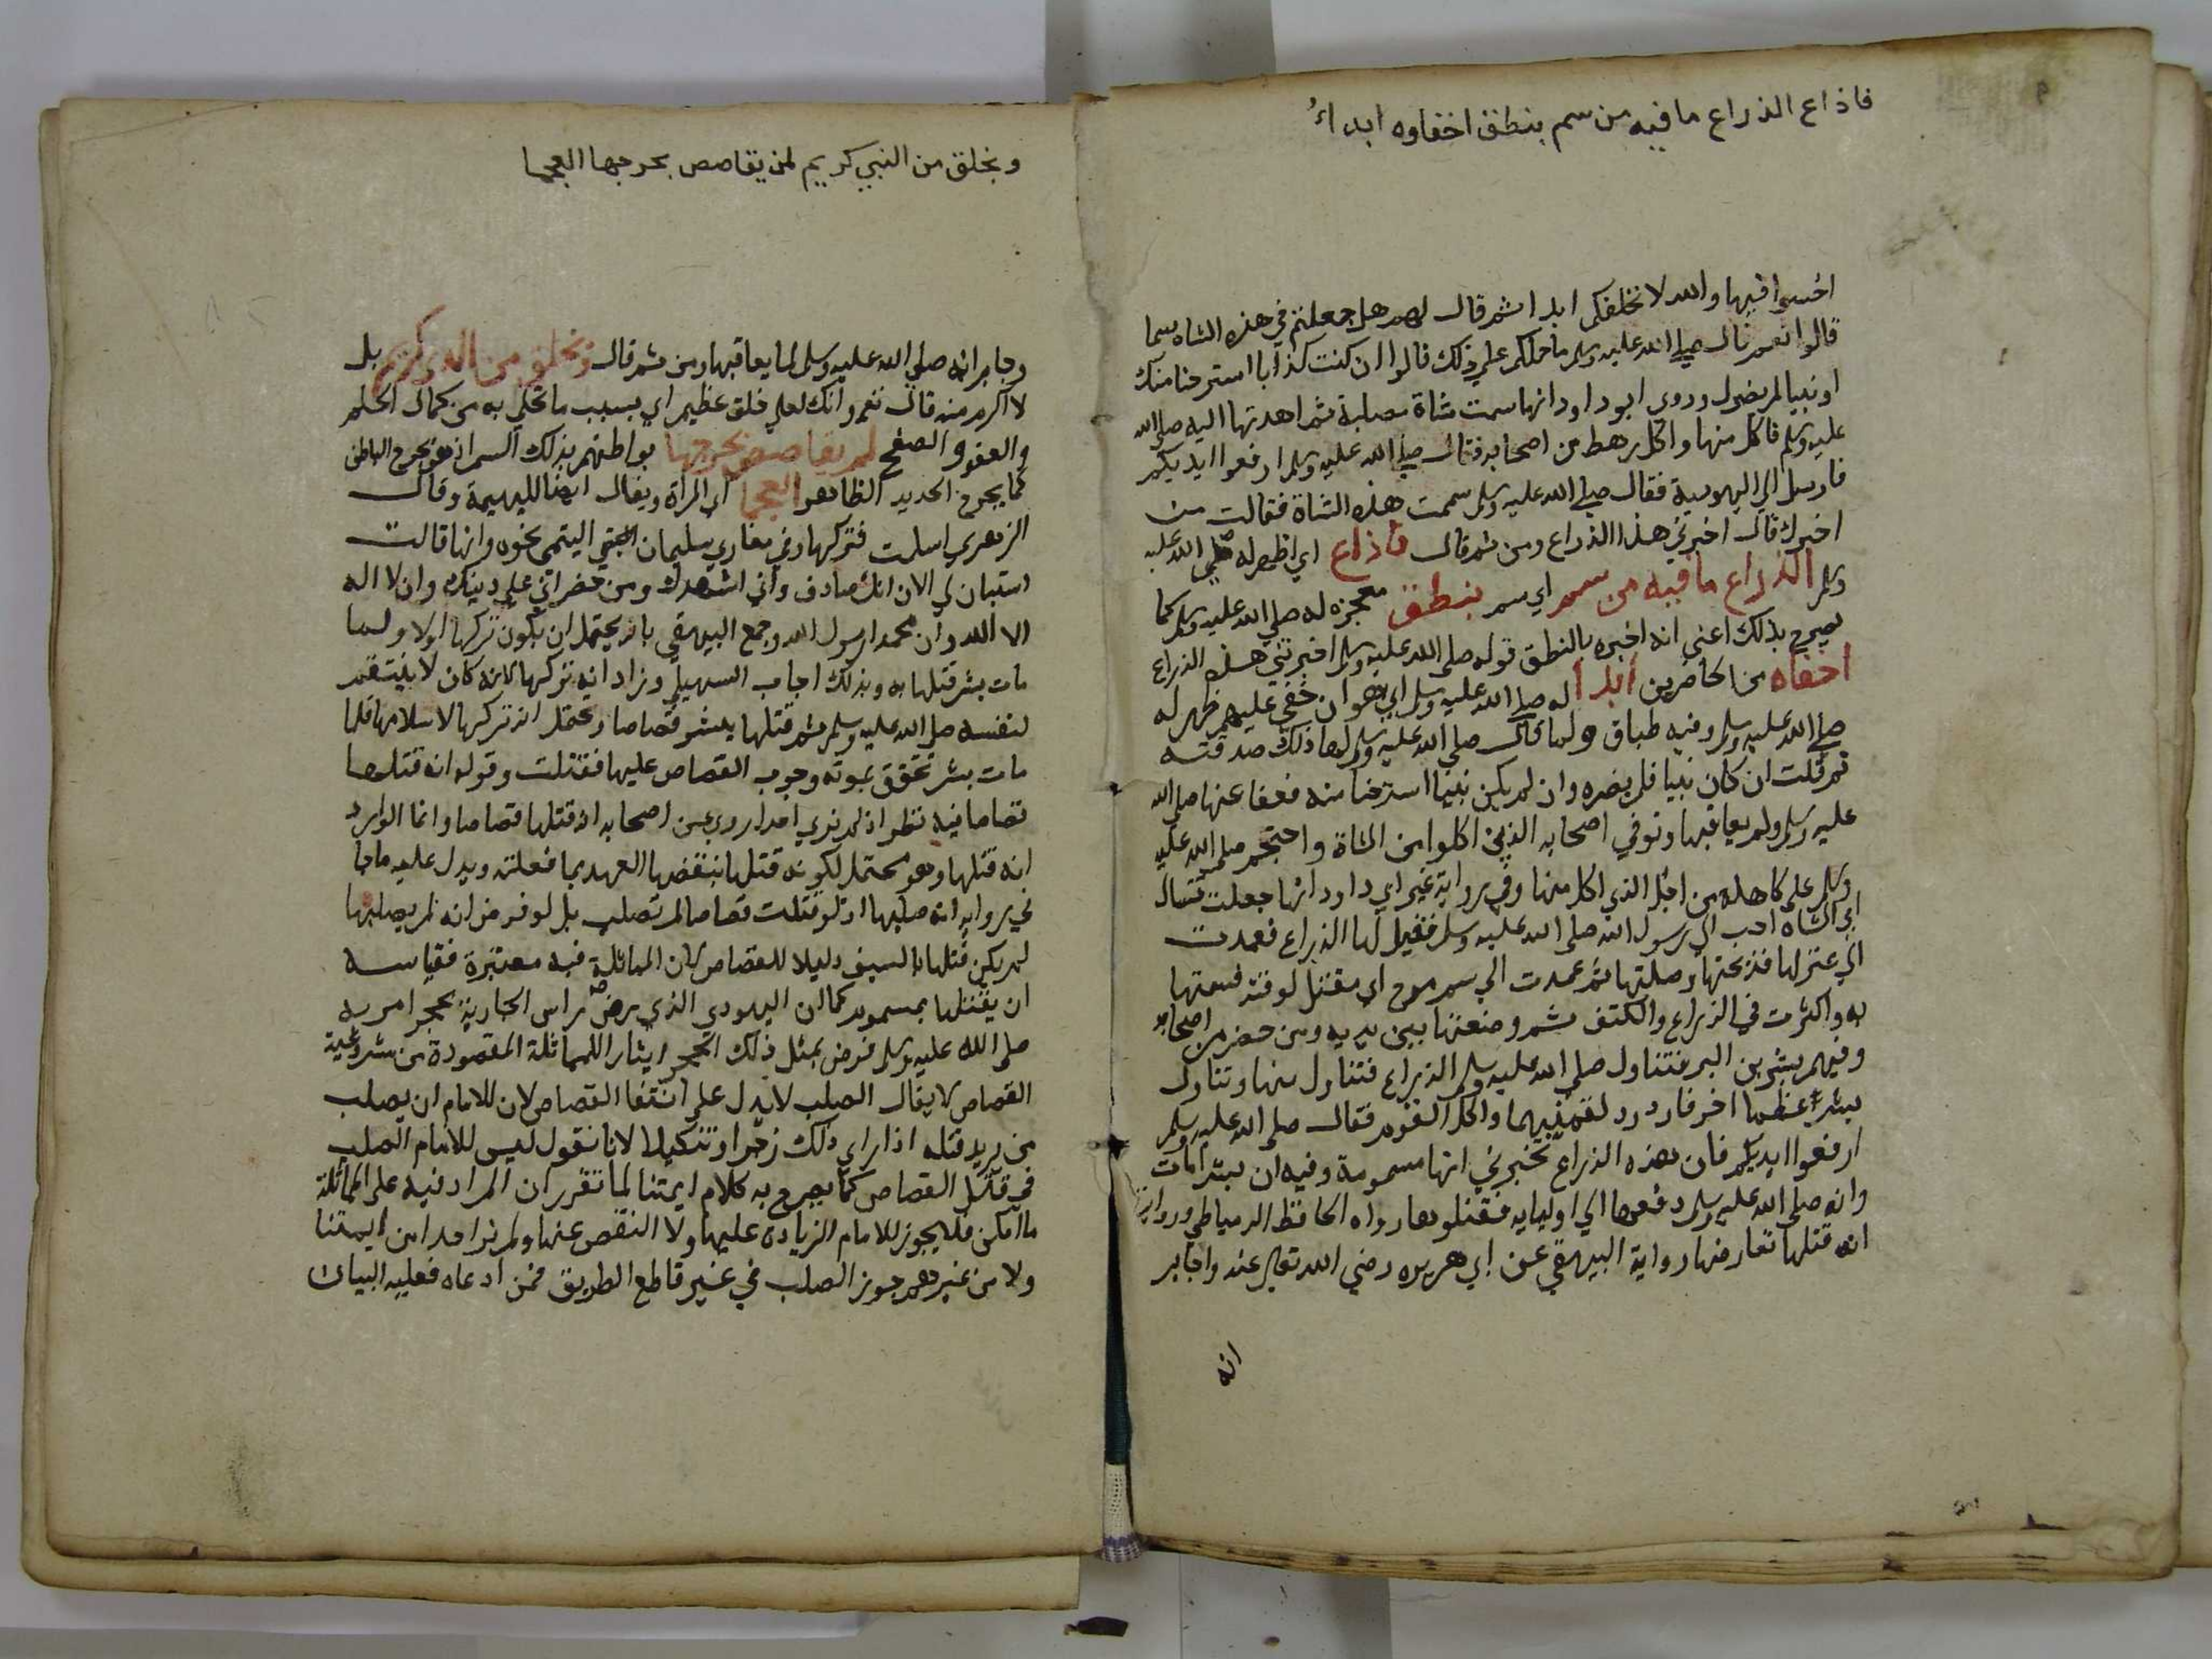 فاذاع الذراع ما فيه من سم بنطق اخفاوه ابداءُ
اخسوا فيها والله لا نخلفكم ابدا ثم قال لهم هل جعلتم في هذه الشاه سما
قالوا نعم قال صلى الله عليه وسلم ما حملكم على ذلك قالوا ان كنت كذابا استرحنا منك
او نبيا لم يضرك وروى ابو داود انها سمت شاة مصلية ثم اهدتها اليه صلى الله
عليه وسلم فاكل منها واكل رهط من اصحابه فقال صلى الله عليه وسلم ارفعوا ايديكم
فارسل الى اليهودية فقال صلى الله عليه وسلم سممت هذه الشاة فقالت من
اخبرك قال اخبرني هذا الذراع ومن ثم قال فاذاع اي اظهر له صلى الله عليه
وسلم الذراع ما فيه من سم اي سم بنطق معجزه له صلى الله عليه وسلم كما
يصرح بذلك اعني انه اخبره بالنطق قوله صلى الله عليه وسلم اخبرتني هذه الذراع
اخفاه من الحاضرين ابدا له صلى الله عليه وسلم اي هو ان خفي عليهم ظهر له
صلى الله عليه وسلم وفيه طباق ولما قال صلى الله عليه وسلم لها ذلك صدقته
ثم قلت ان كان نبيا فلم يضره وان لم يكن نبيا استرحنا منه فعفا عنها صلى الله
عليه وسلم ولم يعاقبها وتوفي اصحابه الذين اكلوا من الشاة واحتجم صلى الله عليه
وسلم على كاهله من اجل الذي اكل منها وفي رواية غير ابي داود انها جعلت تسال
اي الشاه احب الى رسول الله صلى الله عليه وسلم فقيل لها الذراع فعمدت
الى عنز لها فذبحتها وصلتها ثم عمدت الى سم موح اي مقتل لوقته فسمتها
به واكثرت في الذراع والكتف ثم وضعتها بين يديه ومن حضر من اصحابه
وفيهم بشر بن البر فتناول صلى الله عليه وسلم الذراع فتناول منها وتناول
بشر عظما اخر فازدرد لقمتيهما واكل القوم فقال صلى الله عليه وسلم
ارفعوا ايديكم فان هذه الذراع تخبرني انها مسمومة وفيه ان بشرا مات
وانه صلى الله عليه وسلم دفعها الى اوليايه فقتلوها رواه الحافظ الدمياطي ورواية
انه قتلها تعارضها رواية البيهقي عن ابي هريره رضي الله تعالى عنه وجابر
انه
وبخلق من النبي كريم لم يقاصص بجرحها العجما
وجابر انه صلى الله عليه وسلم لما يعاقبها ومن ثم قال وبخلق من النبي كريم بل
لا اكرم منه قال نعم وانك لعلى خلق عظيم اي بسبب ما تحلي به من كمال الحلم
والعفو والصفح لم يقاصص بجرحها بواطنهم بذلك السم اذ هو يجرح الباطن
كما يجرح الحديد الظاهر العجما اي المراة ويقال ايضا للبهيمة وقال
الزهري اسلمت فتركها وفي مغازي سليمان التيمي نحوه وانها قالت
استبان لي الان انك صادق واني اشهدك ومن حضر اني على دينك وان لا اله
الا الله وان محمدا رسول الله وجمع البيهقي بانه يحتمل ان يكون تركها اولا ولما
مات بشر قتلها به وبذلك اجاب السهيلي وزاد انه تركها لانه كان لا ينتقم
لنفسه صلى الله عليه وسلم ثم قتلها ببشر قصاصا ويحتمل انه تركها لاسلامها فلما
مات بشر تحقق بموته وجوب القصاص عليها فقتلت وقوله انه قتلها
قصاصا فيه نظر اذ لم نري احدا روى عن اصحابه انه قتلها قصاصا وانما الوارد
انه قتلها وهو محتمل لكونه قتلها بنقضها العهد بما فعلته ويدل عليه ما جا
في روايه انه صلبها اذ لو قتلت قصاصا لم تصلب بل لو فرض انه لم يصلبها
لم يكن قتلها بالسيف دليلا للقصاص لان المماثلة فيه معتبرة فقياسه
ان يقتلها بمسموم كما ان اليهودي الذي رض راس الجارية بحجر امر به
صلى الله عليه وسلم فرض بمثل ذلك الحجر ايثارا للمماثلة المقصودة من مشروعية
القصاص لا يقال الصلب لا يدل على انتفا القصاص لان للامام ان يصلب
من يريد قتله اذا راى ذلك زجرا وتنكيلا لانا نقول ليس للامام الصلب
في قتل القصاص كما يصرح به كلام ايمتنا لما تقرر ان المراد فيه على المماثلة
ما امكن فلا يجوز للامام الزيادة عليها ولا النقص عنها ولم نر احدا من ايمتنا
ولا من غيرهم جوز الصلب في غير قاطع الطريق فمن ادعاه فعليه البيان